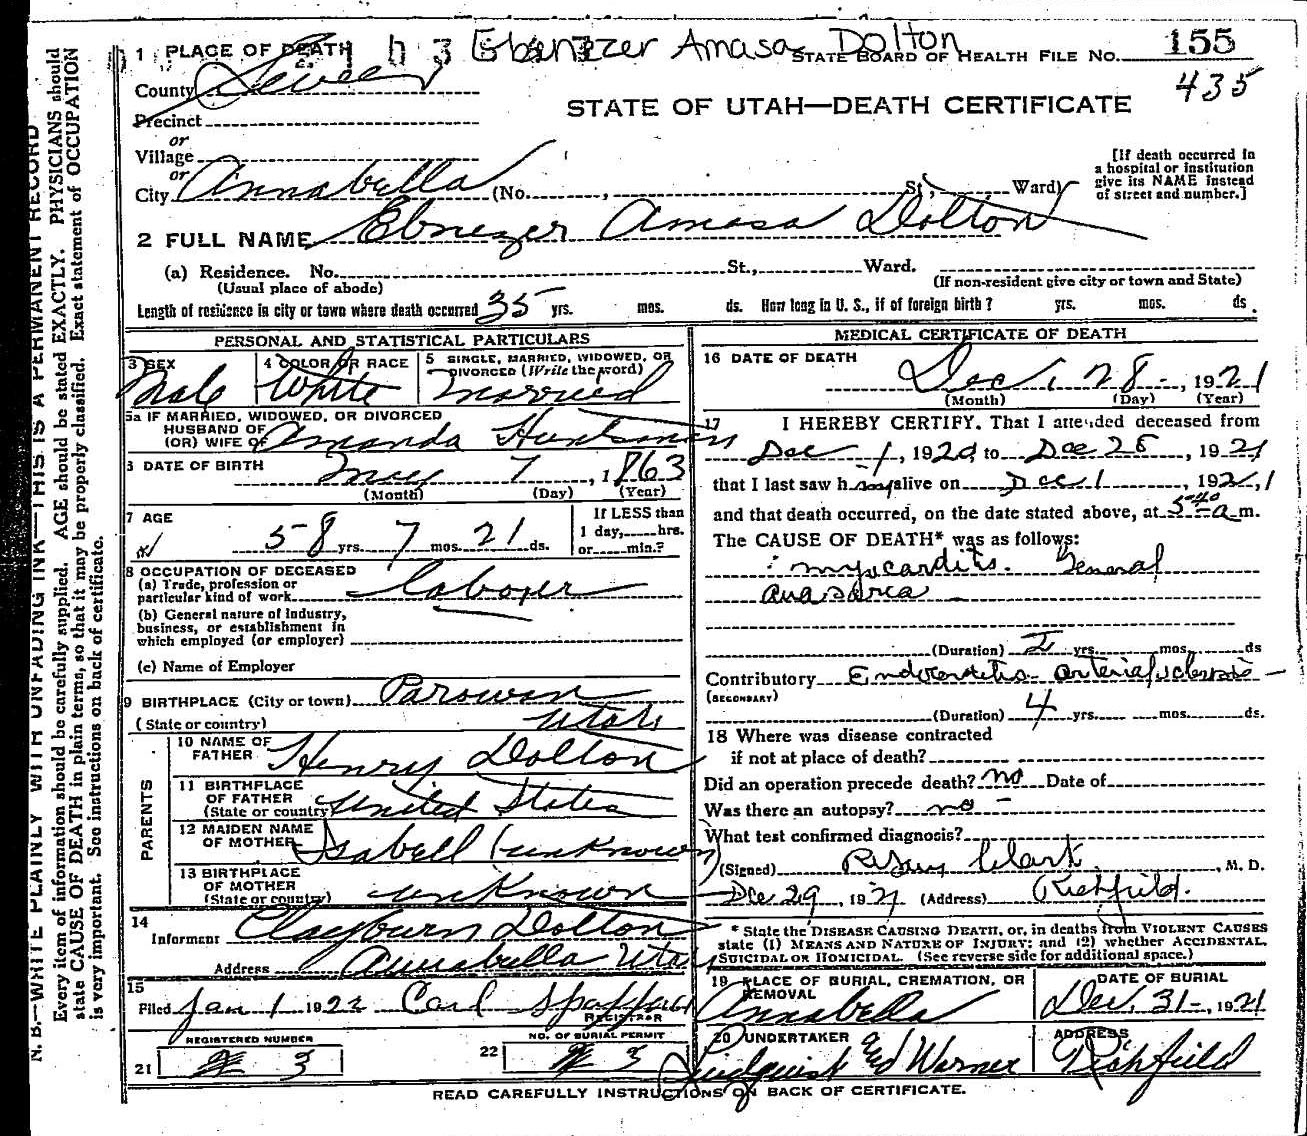 1 PLACE OF DEATH Ebenezer Amasa Dolton STATE BOARD OF HEALTH FILE No. 155
435
County Sevier
STATE OF UTAH—DEATH CERTIFICATE
Precinct
or
Village
or
City Annabella (No. , St., Ward)
[If death occurred in
a hospital or institution
give its NAME instead
of street and number.]
2 FULL NAME Ebnezer Amasa Dolton
(a) Residence. No. St., Ward.
(Usual place of abode) (If non-resident give city or town and State)
Length of residence in city or town where death occurred 35 yrs. mos. ds. How long in U. S., if of foreign birth? yrs. mos. ds.
PERSONAL AND STATISTICAL PARTICULARS
3 SEX Male
4 COLOR OR RACE White
5 SINGLE, MARRIED, WIDOWED, OR
DIVORCED (Write the word)
Married
5a IF MARRIED, WIDOWED, OR DIVORCED
HUSBAND OF
(OR) WIFE OF Amanda Huntsman
6 DATE OF BIRTH May 7, 1863
(Month) (Day) (Year)
7 AGE
58 yrs. 7 mos. 21 ds.
If LESS than
1 day, hrs.
or min.?
8 OCCUPATION OF DECEASED
(a) Trade, profession or
particular kind of work laborer
(b) General nature of industry,
business, or establishment in
which employed (or employer)
(c) Name of Employer
9 BIRTHPLACE (City or town) Parowan
(State or country) Utah
PARENTS
10 NAME OF
FATHER Henry Dolton
11 BIRTHPLACE
OF FATHER
(State or country) United States
12 MAIDEN NAME
OF MOTHER Isabell (unknown)
13 BIRTHPLACE
OF MOTHER
(State or country) unknown
14
Informant Clayburn Dolton
Address Annabella Utah
15
Filed Jan 1 1922 Carl
REGISTRAR
REGISTERED NUMBER
21 3
NO. OF BURIAL PERMIT
22 3
MEDICAL CERTIFICATE OF DEATH
16 DATE OF DEATH
Dec, 28, 1921
(Month) (Day) (Year)
17 I HEREBY CERTIFY. That I attended deceased from
Dec 1, 1920, to Dec 28, 1921
that I last saw him alive on Dec 1, 1921
and that death occurred, on the date stated above, at 5 40 a m.
The CAUSE OF DEATH* was as follows:
myocarditis. General
anasarca
(Duration) yrs. mos. ds
Contributory Endocarditis arteriosclerosis
(SECONDARY)
(Duration) 4 yrs. mos. ds.
18 Where was disease contracted
if not at place of death?
Did an operation precede death? no Date of
Was there an autopsy? no
What test confirmed diagnosis?
(Signed) Clark, M. D.
Dec 29, 1921 (Address) Richfield.
* State the DISEASE CAUSING DEATH, or, in deaths from VIOLENT CAUSES
state (1) MEANS AND NATURE OF INJURY; and (2) whether ACCIDENTAL,
SUICIDAL OR HOMICIDAL. (See reverse side for additional space.)
19 PLACE OF BURIAL, CREMATION, OR
REMOVAL
Annabella
DATE OF BURIAL
Dec, 31-, 1921
20 UNDERTAKER
Lindquist Ed Warner
ADDRESS
Richfield
READ CAREFULLY INSTRUCTIONS ON BACK OF CERTIFICATE.
N. B.—WRITE PLAINLY WITH UNFADING INK—THIS IS A PERMANENT RECORD
Every item of information should be carefully supplied. AGE should be stated EXACTLY. PHYSICIANS should
state CAUSE OF DEATH in plain terms, so that it may be properly classified. Exact statement of OCCUPATION
is very important. See instructions on back of certificate.